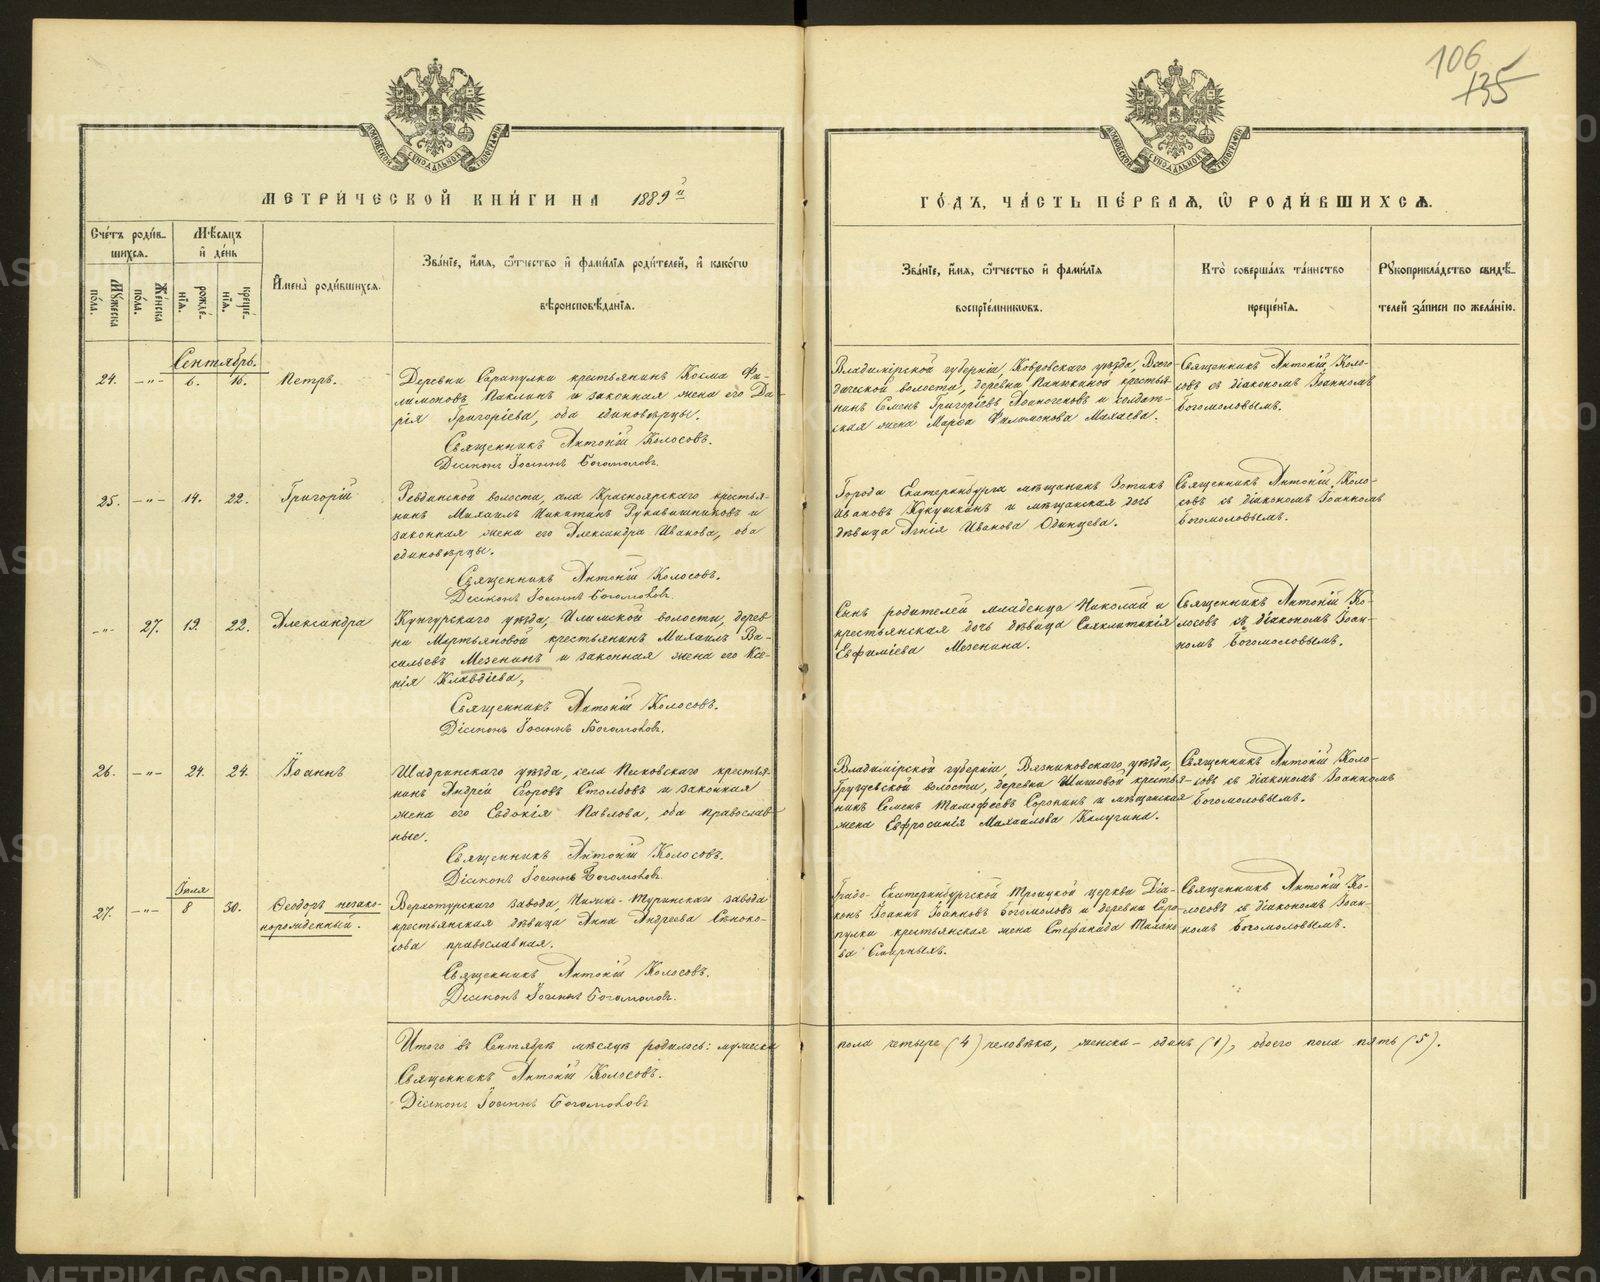 106
135
МОСКОВСКОЙ СѴНОДАЛЬНОЙ ТИПОГРАФІИ
МОСКОВСКОЙ СѴНОДАЛЬНОЙ ТИПОГРАФІИ
МЕТРИ́ЧЕСКОЙ КНИ́ГИ НА 1889й
ГО́ДЪ, ЧА́СТЬ ПЕ́РВАѦ, Ѡ҆ РОДИ́ВШИХСѦ.
Сче́тъ роди́в-
шихся.
Мѣ́сяцъ
и҆ де́нь
Му́жеска по́ла.
Же́нска по́ла.
рожде́-
нїя.
креще́-
нїя.
И҆мена̀ роди́вшихся.
Зва́нїе, и҆́мя, ѻ҆́тчество и҆ фами́лїя роди́телей, и҆ како́гѡ
вѣроисповѣ́данїя.
Зва́нїе, и҆́мя, ѻ҆́тчество и҆ фами́лїя
воспрїе́мникѡвъ.
Кто̀ соверша́лъ та́инство
креще́нїя.
Рꙋкоприкла́дство свидѣ́-
телей за́писи по жела́нїю.
Сентябрь.
24. -„- 6. 16. Петръ.
Деревни Сарапулки крестьянинъ Косма Фи-
лимоновъ Паклинъ и законная жена его Да-
рія Григоріева, оба единовѣрцы.
Священникъ Антоній Колосовъ.
Діаконъ Іоаннъ Богомоловъ.
Владимірской губерніи, Ковровскаго уѣзда, Всего-
дической волости, деревни Панюкиной крестья-
нинъ Семенъ Григоріевъ и солдат-
ская жена Марѳа Филимонова Махаева.
Священникъ Антоній Коло-
совъ съ діакономъ Іоанномъ
Богомоловымъ.
25. -„- 14. 22. Григорій
Ревдинской волости, села Красноярскаго крестья-
нинъ Михаилъ Никитинъ Рукавишниковъ и
законная жена его Александра Иванова, оба
единовѣрцы.
Священникъ Антоній Колосовъ.
Діаконъ Іоаннъ Богомоловъ.
Города Екатеринбурга мѣщанинъ Зотикъ
Ивановъ Кукушкинъ и мѣщанская дочь
дѣвица Агнія Иванова Одинцева.
Священникъ Антоній Коло-
совъ съ діакономъ Іоанномъ
Богомоловымъ.
-„- 27. 19. 22. Александра
Кунгурскаго уѣзда, Илимской волости, дерев-
ни Мартьяновой крестьянинъ Михаилъ Ва-
сильевъ Мезенинъ и законная жена его Ксе-
нія Клавдіева,
Священникъ Антоній Колосовъ.
Діаконъ Іоаннъ Богомоловъ.
Сынъ родителей младенца Николай и
крестьянская дочь дѣвица Сѵнклитикія
Евфиміева Мезенина.
Священникъ Антоній Ко-
лосовъ съ діакономъ Іоан-
номъ Богомоловымъ.
26. -„- 24. 24. Іоаннъ
Шадринскаго уѣзда, села Песковскаго крестья-
нинъ Андрей Егоровъ Столбовъ и законная
жена его Евдокія Павлова, оба православ-
ные.
Священникъ Антоній Колосовъ.
Діаконъ Іоаннъ Богомоловъ.
Владимірской губерніи, Вязниковскаго уѣзда,
Груздевской волости, деревни Шишовой крестья-
нинъ Семенъ Тимофеевъ Сорокинъ и мѣщанская
жена Евфросинія Михайлова Калугина.
Священникъ Антоній Коло-
совъ съ діакономъ Іоанномъ
Богомоловымъ.
Іюля
27. -„- 8 30. Ѳеодоръ незако-
норожденный.
Верхотурскаго завода, Нижне-Туринскаго завода
крестьянская дѣвица Анна Андреева Сѣноко-
сова православная.
Священникъ Антоній Колосовъ.
Діаконъ Іоаннъ Богомоловъ.
Градо-Екатеринбургской Троицкой церкви Діа-
конъ Іоаннъ Іоанновъ Богомоловъ и деревни Сара-
пулки крестьянская жена Стефанида Тихано-
ва Смирныхъ.
Священникъ Антоній Ко-
лосовъ съ діакономъ Іоан-
номъ Богомоловымъ.
Итого въ Сентябрѣ мѣсяцѣ родилось: мужеска пола четыре (4) человѣка, женска - одинъ (1), обоего пола пять (5).
Священникъ Антоній Колосовъ.
Діаконъ Іоаннъ Богомоловъ
METRIKI.GASO-URAL.RU